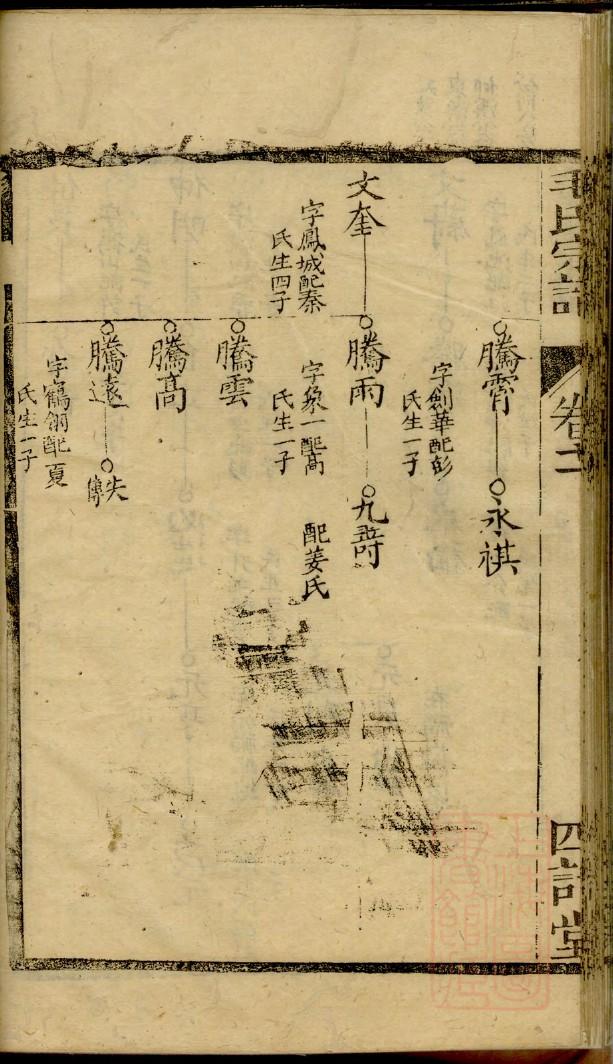 毛氏宗譜
卷二
四詩堂
騰霄
字劍華配彭
氏生一子
永祺
文奎
字鳳城配秦
氏生四子
騰雨
字象一配高
氏生一子
九壽
配姜氏
騰雲
騰高
騰遠
字鶴翎配夏
氏生一子
失
傳